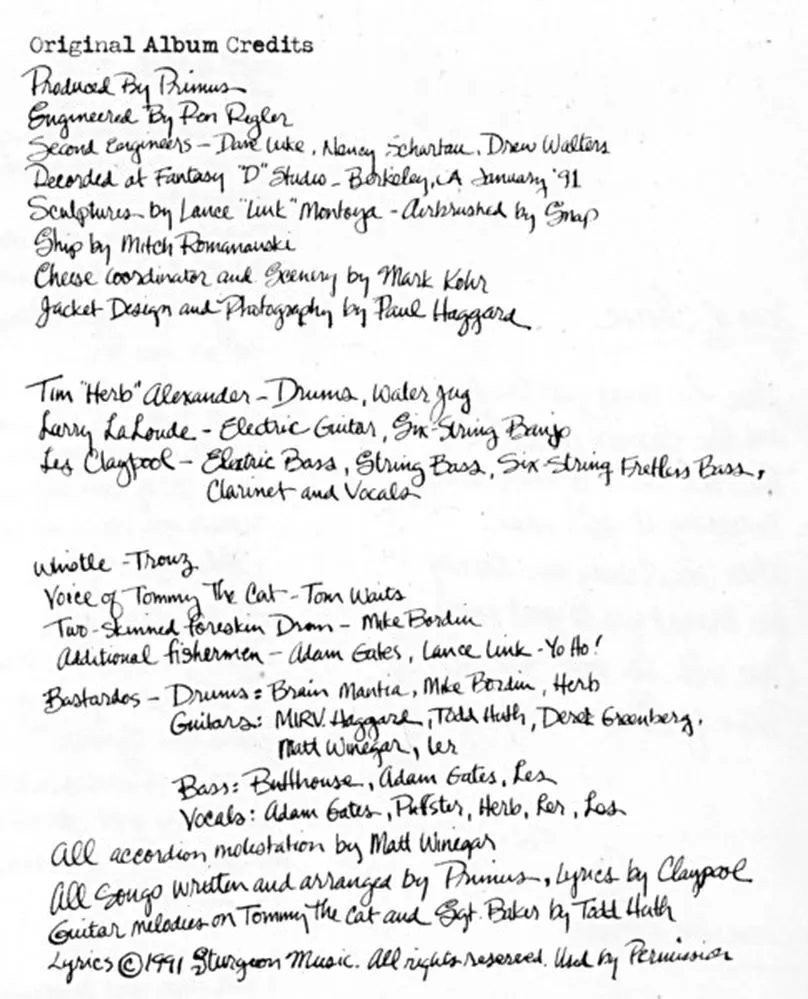 Original Album Credits
Produced By Primus
Engineered By Ron Rigler
Second Engineers – Dave Luke, Nancy Scharlau, Drew Walters
Recorded at Fantasy "D" Studio – Berkeley, CA January '91
Sculptures by Lance "Link" Montoya - Airbrushed by Snap
Ship by Mitch Romanauski
Cheese Coordinator and Scenery by Mark Kohr
Jacket Design and Photography by Paul Haggard
Tim "Herb" Alexander – Drums, Water Jug
Larry LaLonde - Electric Guitar, Six-String Banjo
Les Claypool – Electric Bass, String Bass, Six-String Fretless Bass,
Clarinet and Vocals
Whistle - Trouz
Voice of Tommy The Cat - Tom Waits
Two-Skinned Foreskin Drum – Mike Bordin
Additional fishermen – Adam Gates, Lance Link - Yo Ho!
Bastardos – Drums: Brain Mantia, Mike Bordin, Herb
Guitars: MIRV Haggard, Todd Huth, Derek Greenberg,
Matt Winegar, Ler
Bass: Butthouse, Adam Gates, Les
Vocals: Adam Gates, Puffster, Herb, Ler, Les
All accordion molestation by Matt Winegar
All Songs Written and arranged by Primus, Lyrics by Claypool
Guitar melodies on Tommy The Cat and Sgt. Baker by Todd Huth
Lyrics ©1991 Sturgeon Music. All rights reserved. Used by Permission